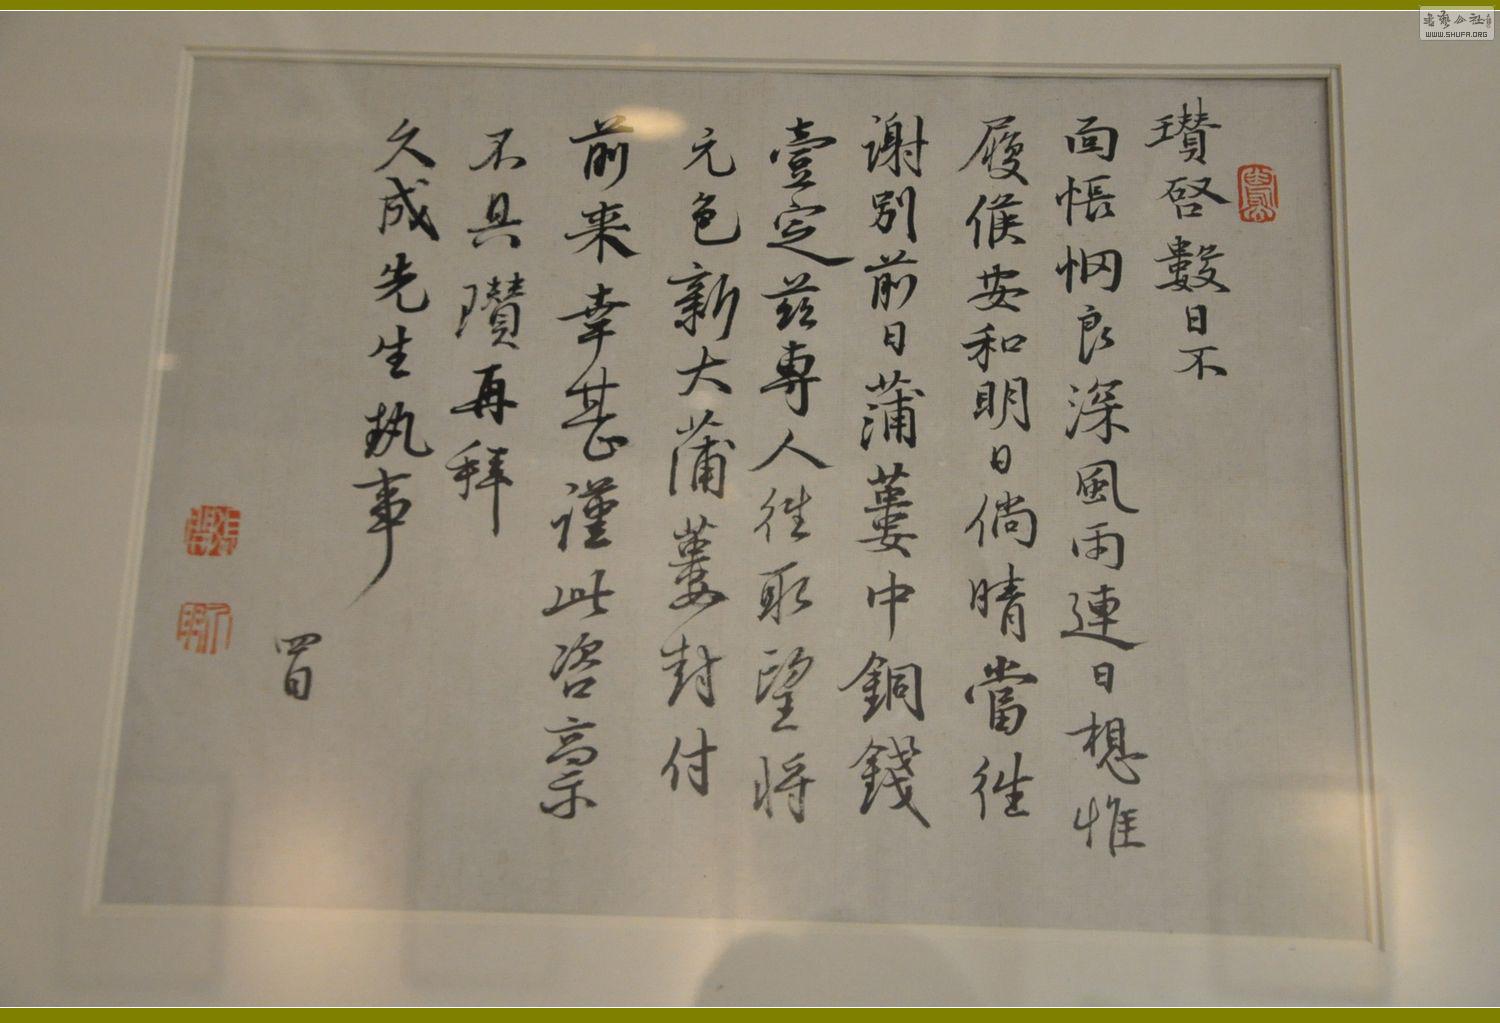 瓚啓數日不
面悵惘良深風雨連日想惟
履候安和明日倘晴當往
謝別前日蒲蔞中銅錢
壹定茲專人往取望將
元色新大蒲蔞封付
前来幸甚謹此咨稟
不具瓚再拜
久成先生執事
四日
書藝公社
WWW.SHUFA.ORG